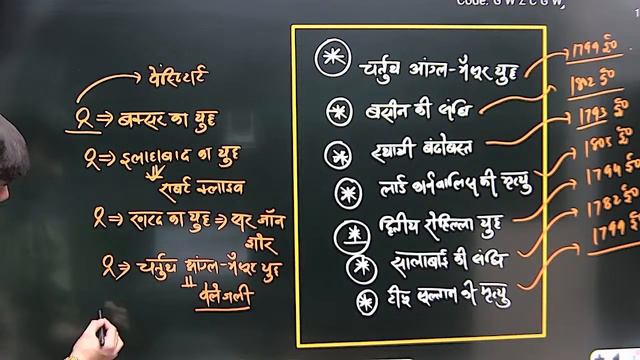 Code: G W Z C G W
वेंसिटार्ट
⇒ बक्सर का युद्ध
⇒ इलाहाबाद का युद्ध
राबर्ट क्लाइव
⇒ खरदा का युद्ध ⇒ सर जॉन
शोर
⇒ चर्तुथ आंग्ल-मैसूर युद्ध
वेलेजली
* चर्तुथ आंग्ल-मैसूर युद्ध 1799 ई०
* बसीन की संधि 1802 ई०
* स्थायी बंदोबस्त 1793 ई०
* लार्ड कार्नवालिस की मृत्यु 1805 ई०
* द्वितीय रोहिल्ला युद्ध 1794 ई०
* सालाबाई की संधि 1782 ई०
* टीपू सुल्तान की मृत्यु 1799 ई०